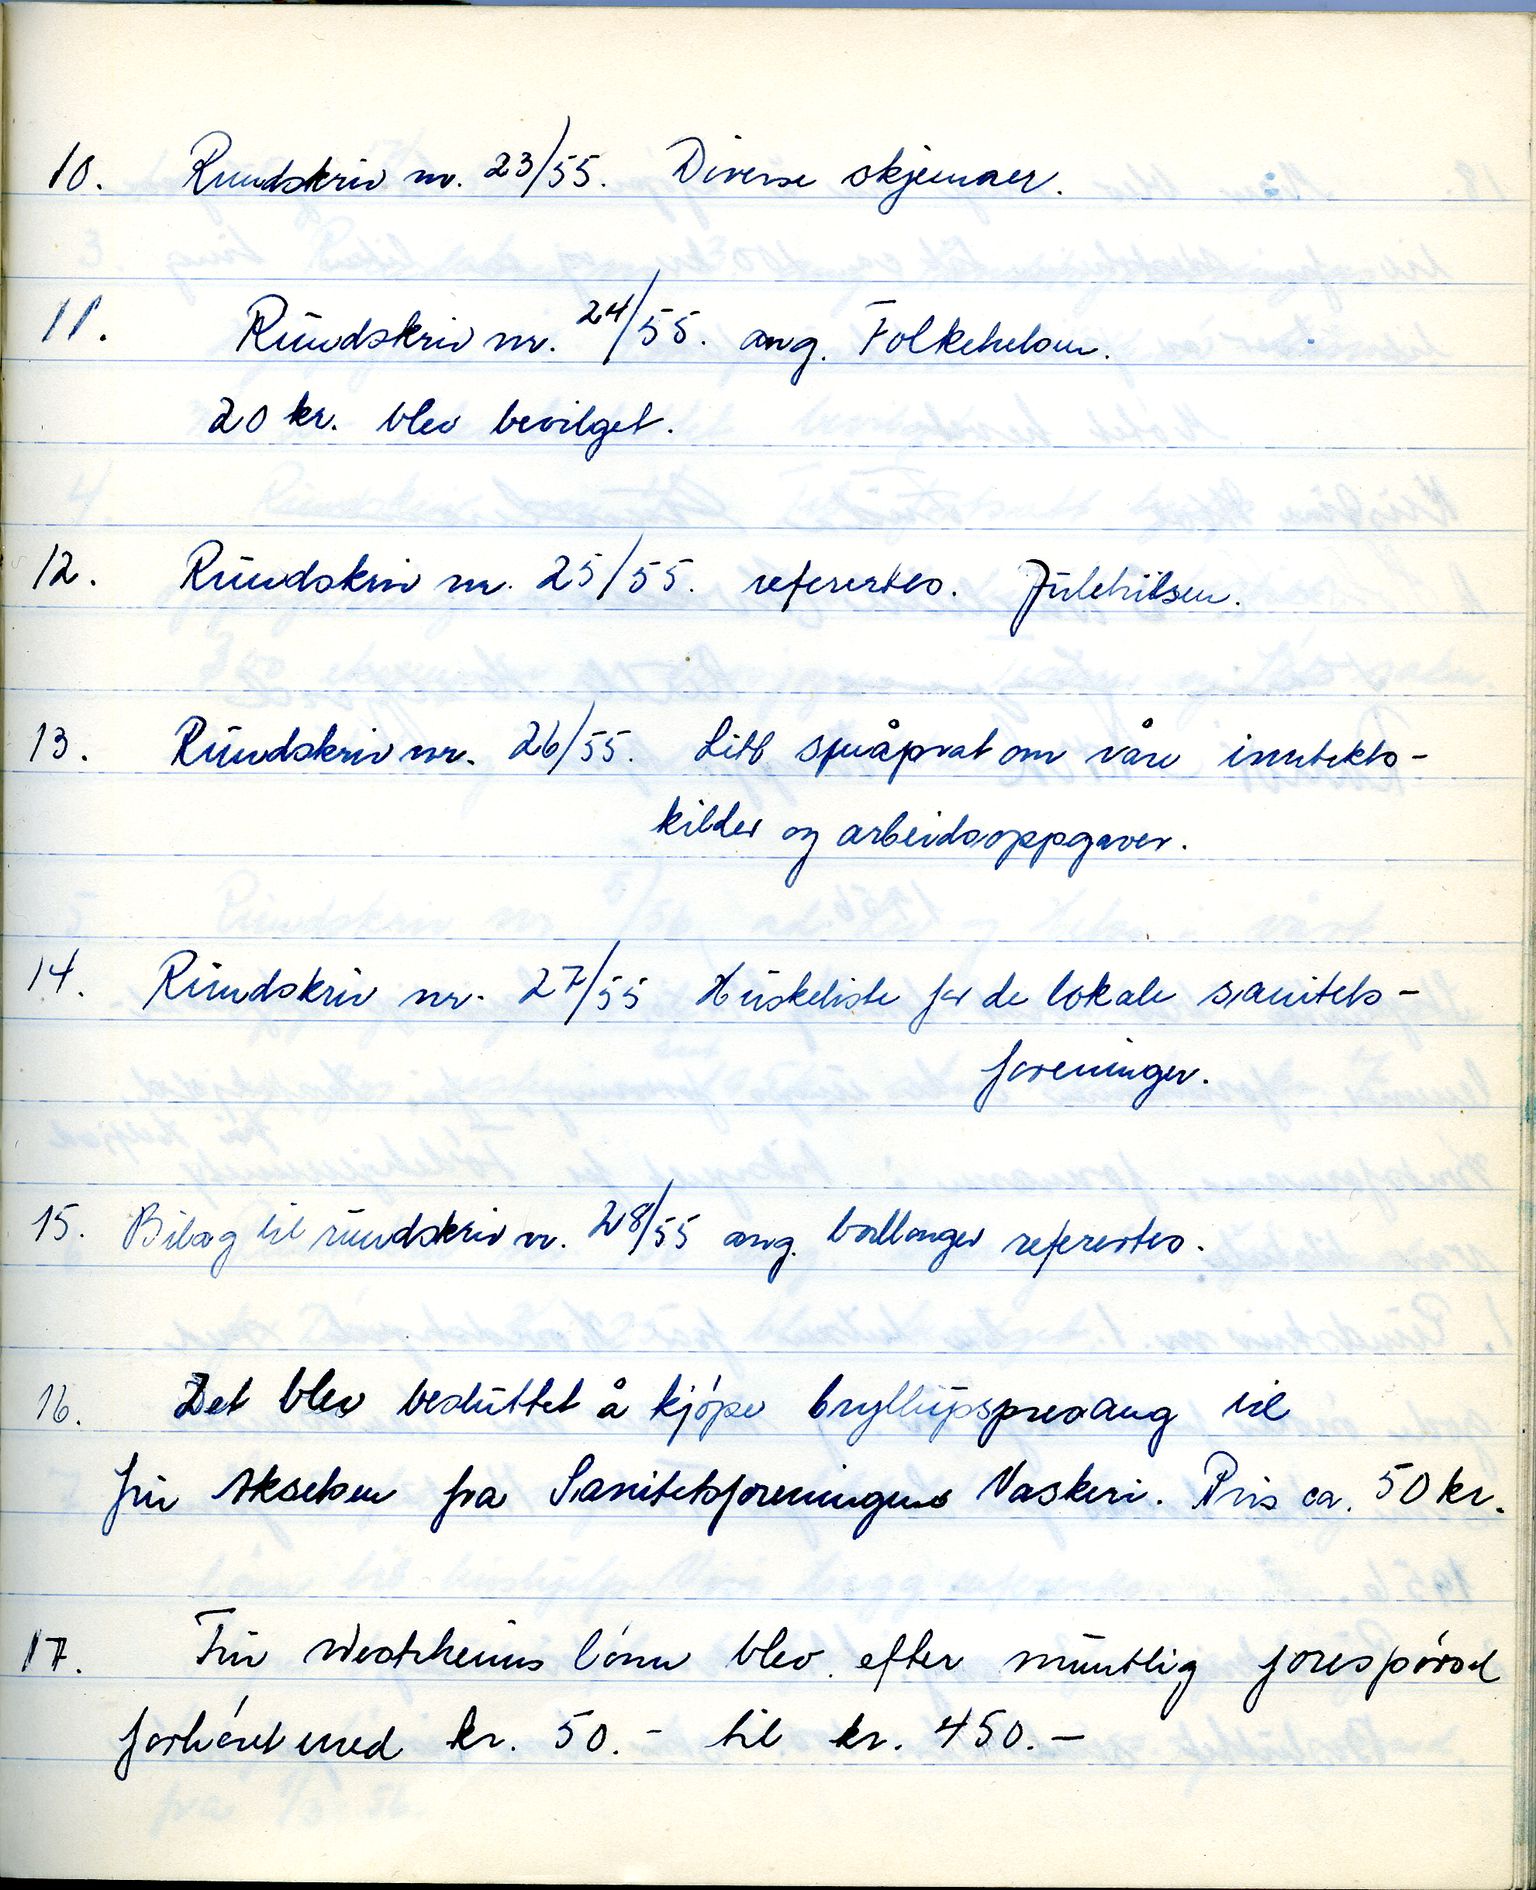 10. Rundskriv nr. 23/55. Diverse skjemaer.
11. Rundskriv nr. 24/55. ang. Folkehelsen.
20 kr. blev bevilget.
12. Rundskriv nr. 25/55. refertes. Julehilsen.
13. Rundskriv nr. 26/55. Litt småprat om våre inntekts-
kilder og arbeidsoppgaver.
14. Rundskriv nr. 27/55 Huskeliste for de lokale sanitets-
foreninger.
15. Bilag til rundskriv nr. 28/55 ang. ballonger refertes.
16. Det blev besluttet å kjøpe bryllupspresang til
fru Akselsen fra Sanitetsforeningens Vaskeri. Pris ca. 50 kr.
17. Fru Westrheims lønn blev efter muntlig forespørsel
forhøiet med kr. 50.- til kr. 450.-